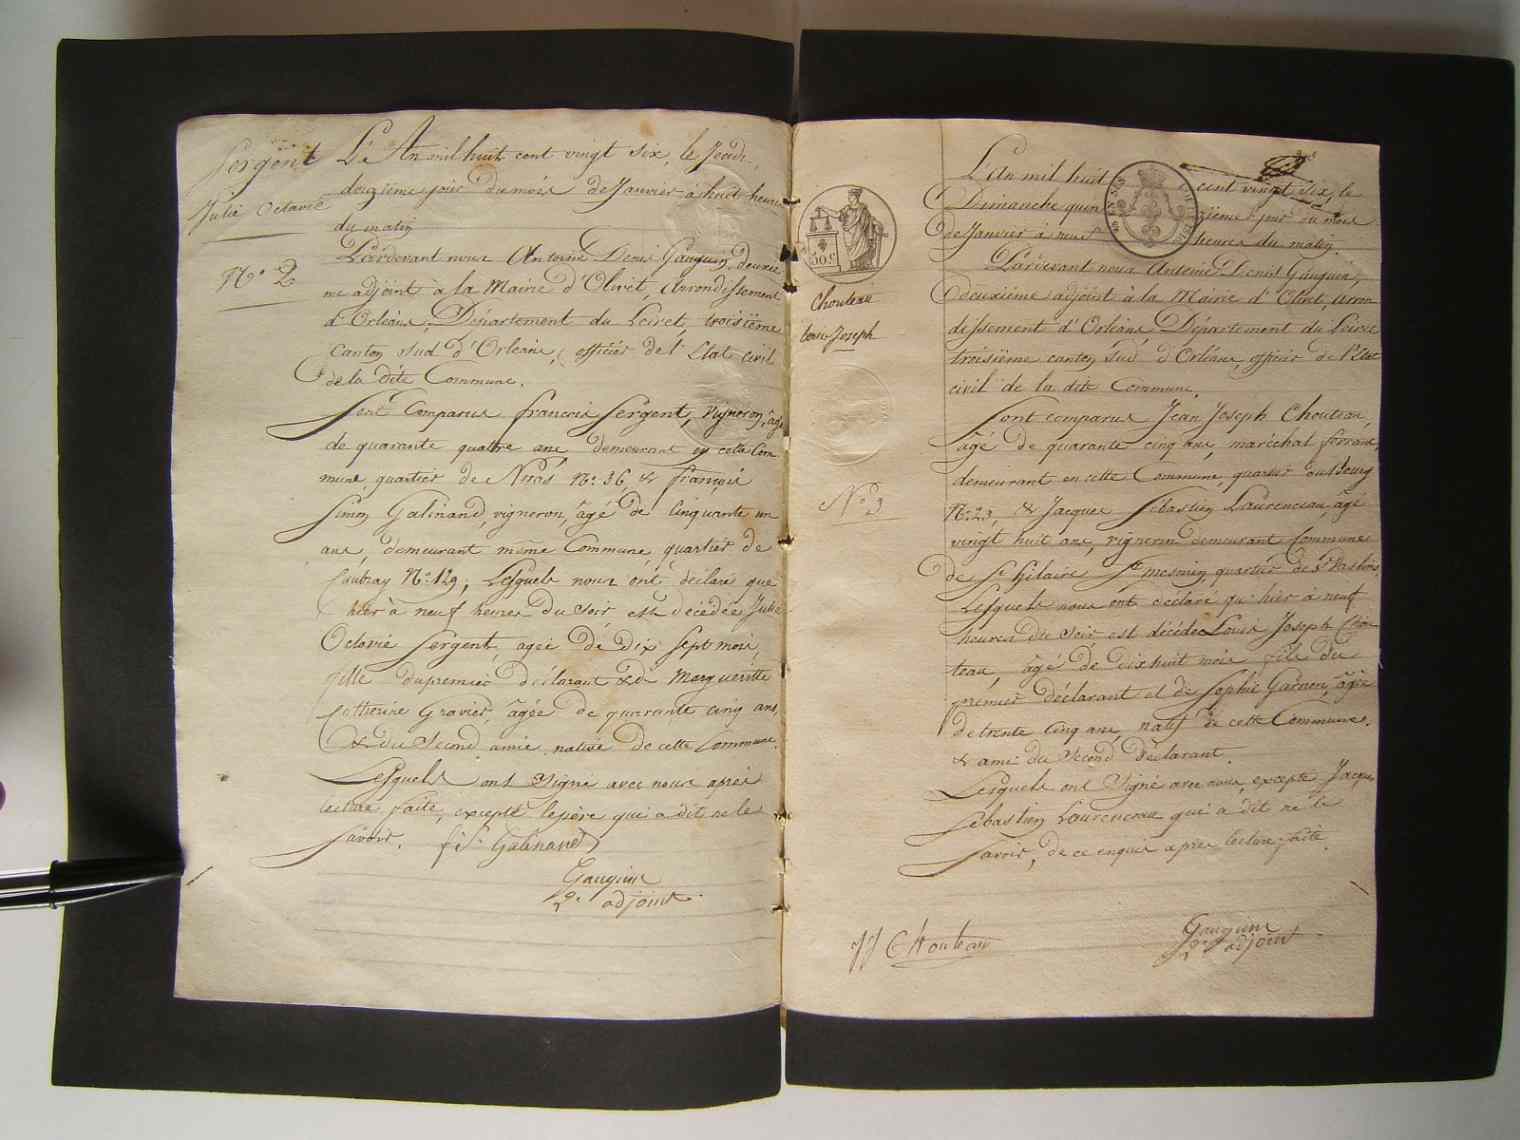 Sergent
Julie Octavie
N.º 2
L'An mil huit cent vingt six, le Jeudi
douzième jour du mois de Janvier à huit heures
du matin
Pardevant nous Antoine Denis Gauguin, deuxiè
me adjoint à la Mairie d'Olivet, Arrondissement
d'Orléans, Département du Loiret, troisième
Canton sud d'Orléans, officier de l'Etat civil
de la dite Commune.
Sont Comparus françois Sergent, vigneron, âgé
de quarante quatre ans, demeurant en cette Com
mune, quartier de N.º 36, & françois
Simon Galinand, vigneron, âgé de Cinquante un
ans, demeurant même Commune, quartier de
Caubray N.º 129; Lesquels nous ont déclaré que
hier à neuf heures du soir est décédée Julie
Octavie Sergent, agée de dix sept mois,
fille du premier déclarant & de Margueritte
Catherine Gravier, âgée de quarante cinq ans,
& du Second amie, native de cette Commune.
Lesquels ont signé avec nous après
lecture faite, excepté le père qui a dit ne le
savoir. f. S. Galinand
Gauguin
2.e adjoint
Chouteau
Louis Joseph
N.º 3
50 c
L'An mil huit cent vingt six, le
Dimanche quinzième jour du mois
de Janvier à neuf heures du matin.
Pardevant nous Antoine Denis Gauguin,
deuxième adjoint à la Mairie d'Olivet, Arron
dissement d'Orléans Département du Loiret
troisième canton sud d'Orléans, officier de l'Etat
civil de la dite Commune.
Sont comparus Jean Joseph Chouteau,
agé de quarante cinq ans, maréchal ferrant,
demeurant en cette Commune, quartier du Bourg
N.º 23, & Jacques Sébastien Laurenceau, âgé
vingt huit ans, vigneron demeurant Commune
de St. hilaire St. mesmin quartier de
Lesquels nous ont déclaré qu'hier à neuf
heures du soir est décédé Louis Joseph Chou
teau, âgé de dix huit mois fils du
premier déclarant et de Sophie âgée
de trente cinq ans natif de cette Commune.
& ami du Second déclarant.
Lesquels ont Signé avec nous, excepté Jacques
Sébastien Laurenceau qui a dit ne le
savoir, de ce enquis après lecture faite.
JJ Chouteau
Gauguin
2.e adjoint